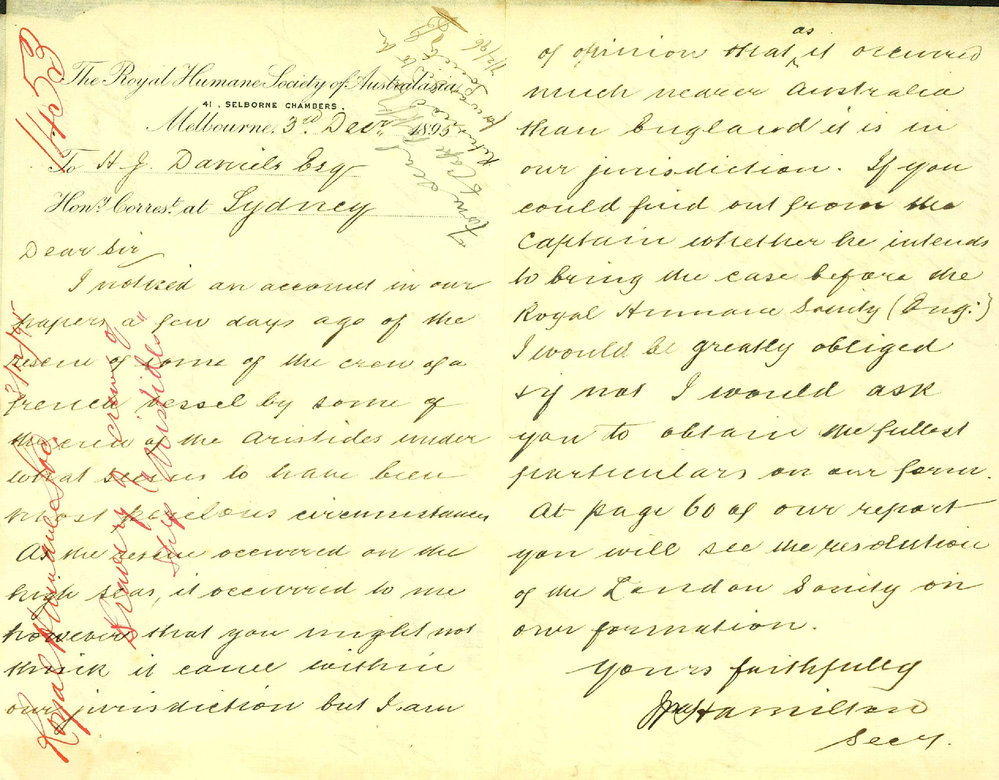 The Royal Humane Society of Australasia
41, SELBORNE CHAMBERS.
Melbourne, 3rd Decr 1895
To H. J. Daniels Esq
Hony. Corresst. at Sydney
Dear Sir
I noticed an account in our
papers a few days ago of the
rescue of some of the crew of a
french vessel by some of
the crew of the Aristides under
what seems to have been
most perilous circumstances
As the rescue occurred on the
high seas, it occurred to me
however that you might not
think it came within
our jurisdiction but I am
of opinion that as it occurred
much nearer Australia
than England it is in
our jurisdiction. If you
could find out from the
Captain whether he intends
to bring the case before the
Royal Humane Society (Eng:)
I would be greatly obliged
if not I would ask
you to obtain the fullest
particulars on our form.
At page 60 of our report
you will see the resolution
of the London Society on
our formation.
Yours faithfully
Hamilton
Secy.
1453
Royal Humane Soc. 3/12/95
Bravery of crew of
Ship "Aristides"